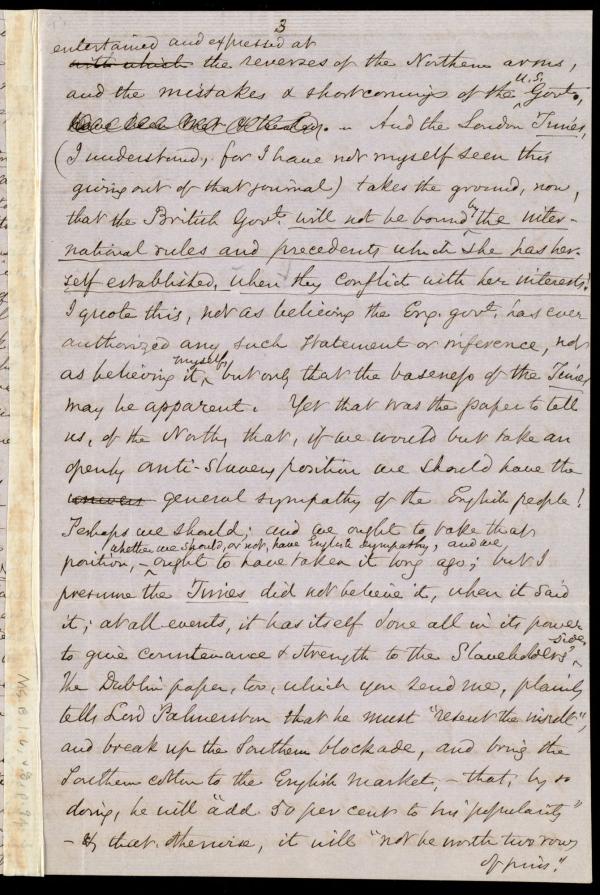 3
entertained and expressed at
with which the reverses of the Northern arms,
and the mistakes & shortcomings of the U.S. Govt.,
And the London Times,
(I understand, for I have not myself seen this
giving out of that journal) takes the ground, now,
that the British Govt. will not be bound by the inter-
national rules and precedents which she has her-
self established, when they conflict with her interests!
I quote this, not as believing the Eng. govt. has ever
authorized any such statement or inference, nor
as believing it myself, but only that the baseness of the Times
may be apparent. Yet that was the paper to tell
us, of the North, that, if we would but take an
openly anti-slavery position we should have the
general sympathy of the English people!
Perhaps we should; and we ought to take that
whether we should, or not, have English sympathy, and we
position, – ought to have taken it long ago; but I
presume the Times did not believe it, when it said
it; at all events, it has itself done all in its power
to give countenance & strength to the Slaveholders' side.
The Dublin paper, too, which you send me, plainly
tells Lord Palmerston that he must "resent the insult",
and break up the Southern blockade, and bring the
Southern cotton to the English market, – that, by so
doing, he will "add 50 per cent to his popularity"
– & that otherwise, it will "not be worth two rows
of pins".